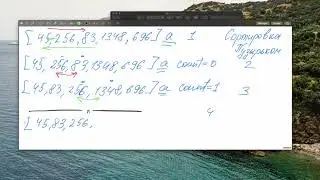 [45,256,83,1348,696.] a 1 Сортировка
[45, 256,83,1348,696.] a count=0 Пузырьком 2
[45,83,256,1348,696.] a count=1 3
4
[45,83,256,